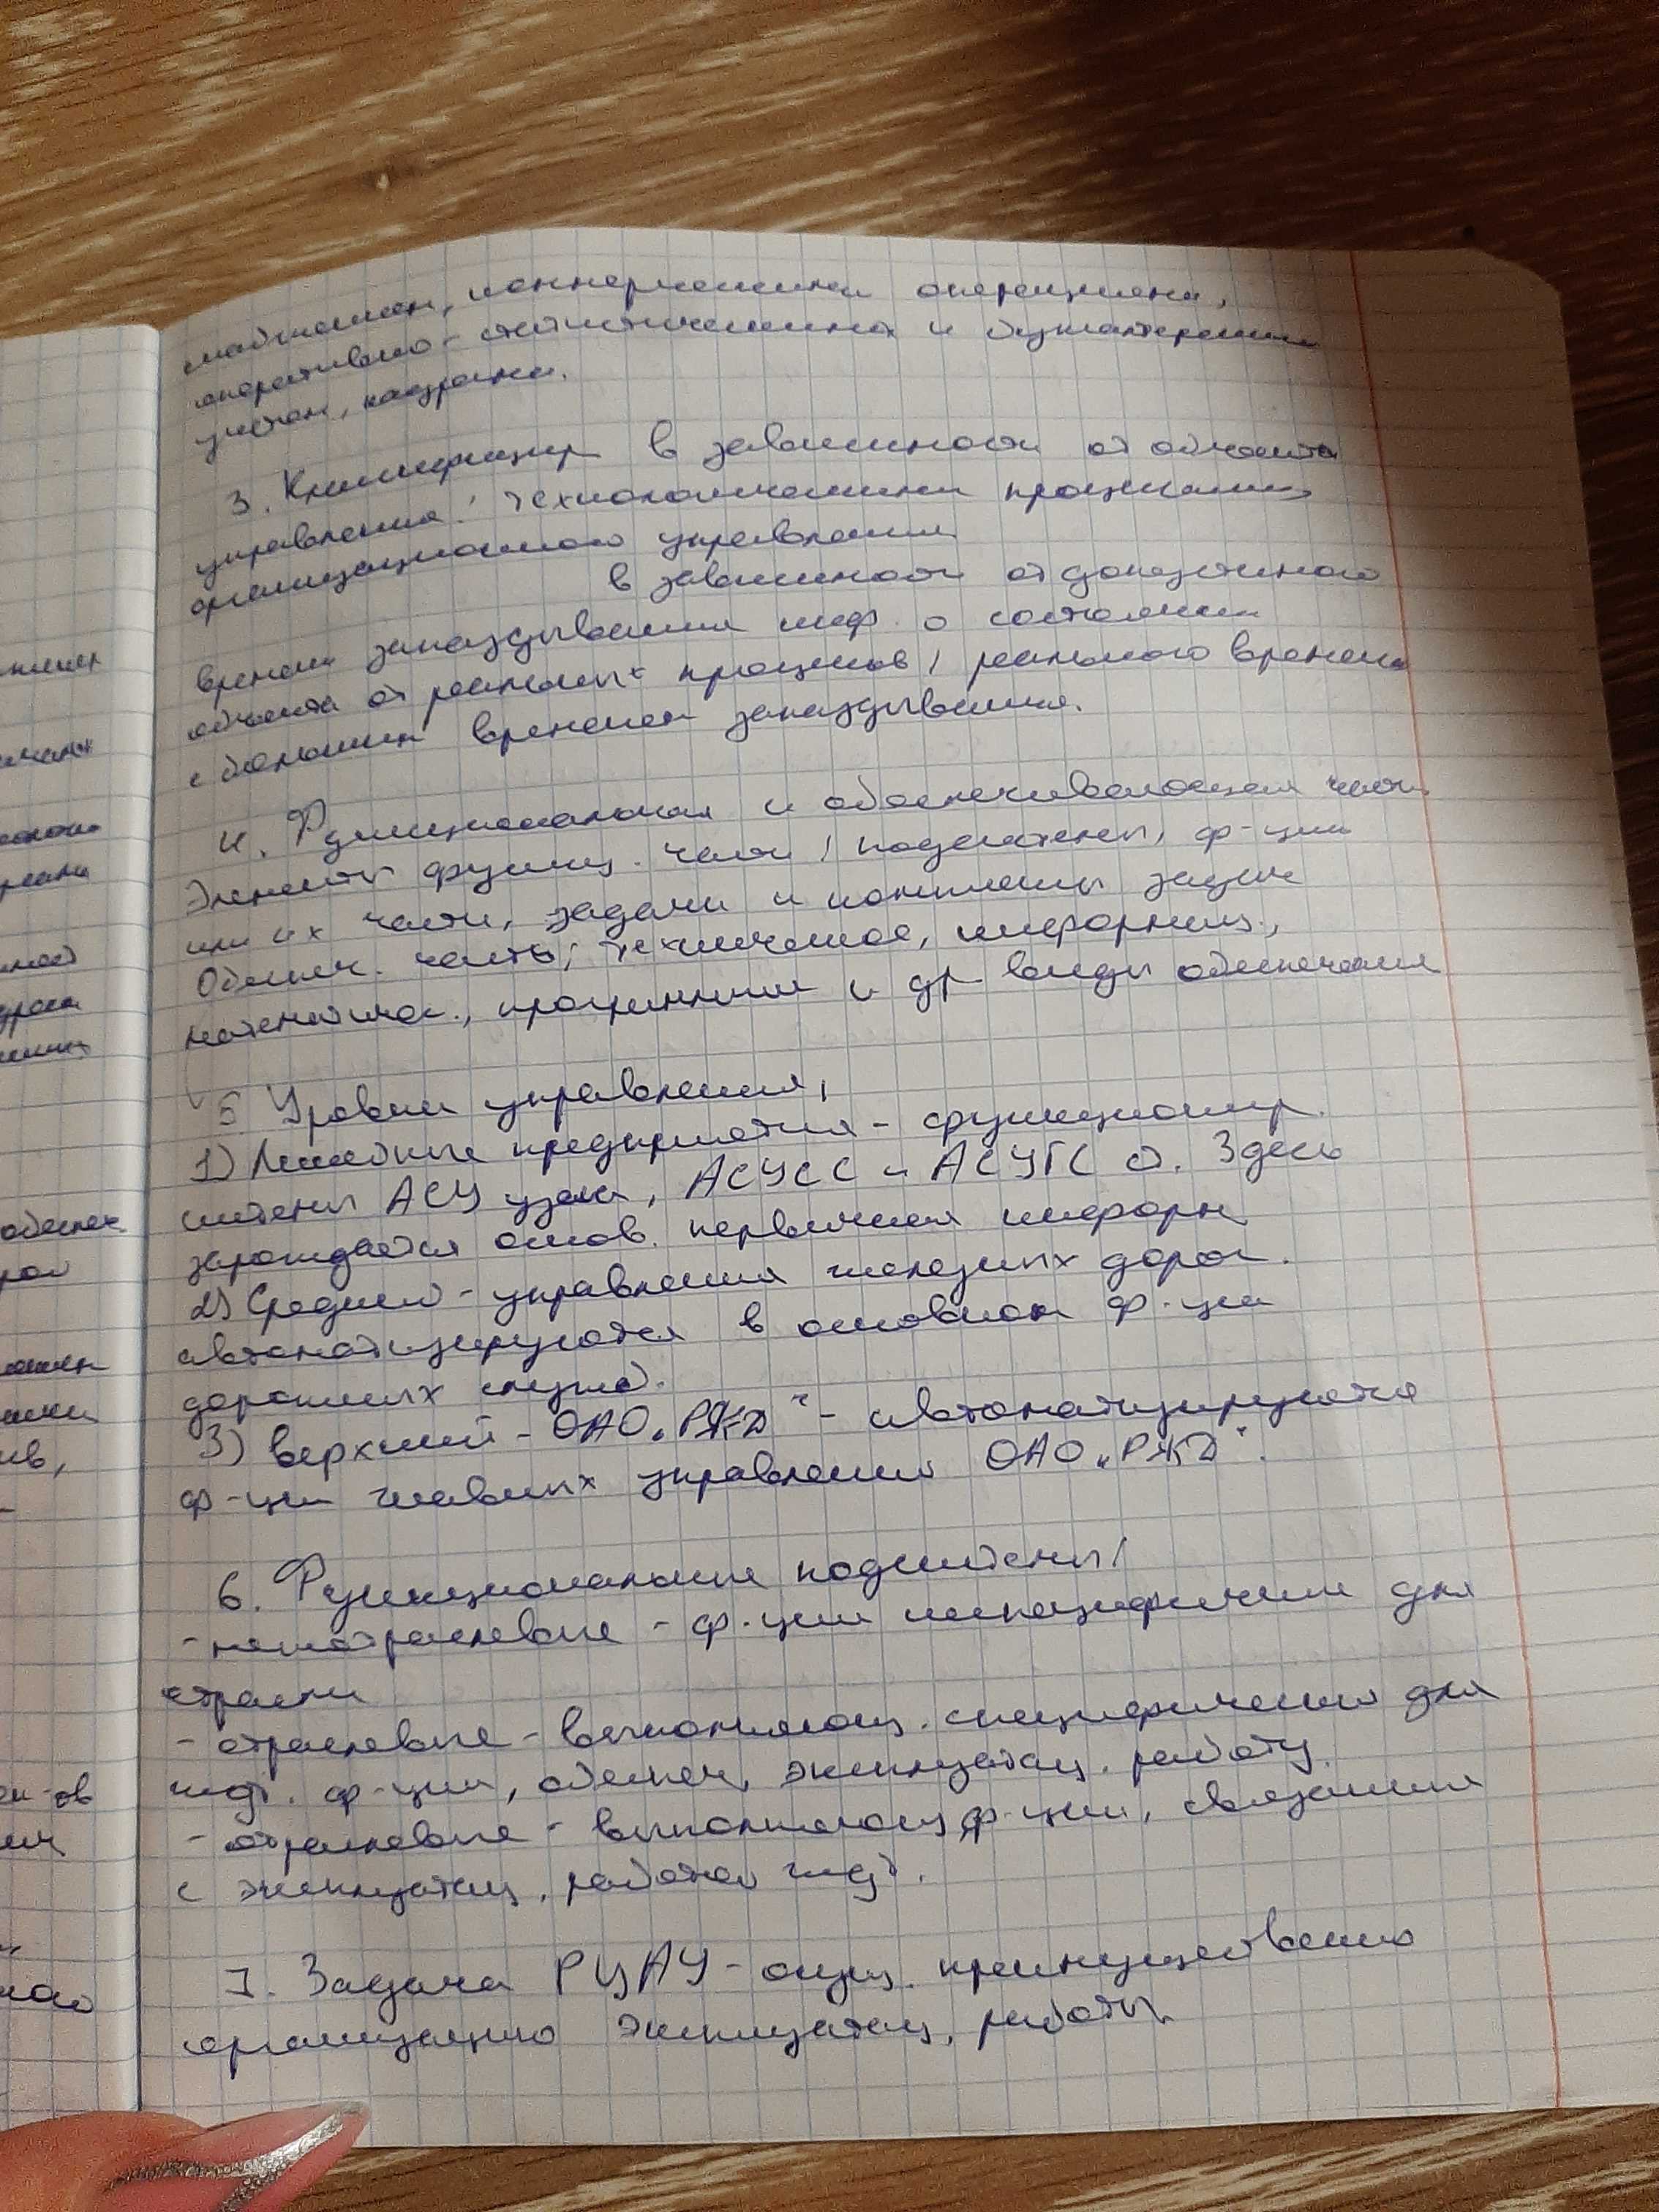 снабжением, коммерческими операциями,
оперативно-статистическим и бухгалтерским
учётом, кадрами.
3. Классификация в зависимости от объекта
управления: технологическими процессами,
организационного управления
в зависимости от допустимого
времени запаздывания инф. о состоянии
объекта от реальных процессов: реального времени
с большим временем запаздывания.
4. Функциональная и обеспечивающая часть
Элементы функц. части: подсистемы, ф-ции
или их части, задачи и комплексы задач
Обеспеч. часть: техническое, информац.,
математич., программное и др виды обеспечения
5 Уровни управления:
1) Линейные предприятия - функционир.
системы АСУ узла, АСУСС и АСУГС
Здесь
зарождается основ. первичная информ
2) Средний - управления железных дорог.
автоматизируются в основном ф-ции
дорожных служб.
3) верхний - ОАО „РЖД" - автоматизируются
ф-ции главных управлений ОАО „РЖД".
6. Функциональные подсистемы:
- ф-ции неспецифичные для
отрасли
- отраслевые - выполняющ. специфические для
ждт. ф-ции, обеспеч. эксплуатац. работу.
- отраслевые - выполняющ ф-ции, связанные
с эксплуатац. работой ждт.
7. Задача РЦАУ - преимущественно
организацию эксплуатац. работы